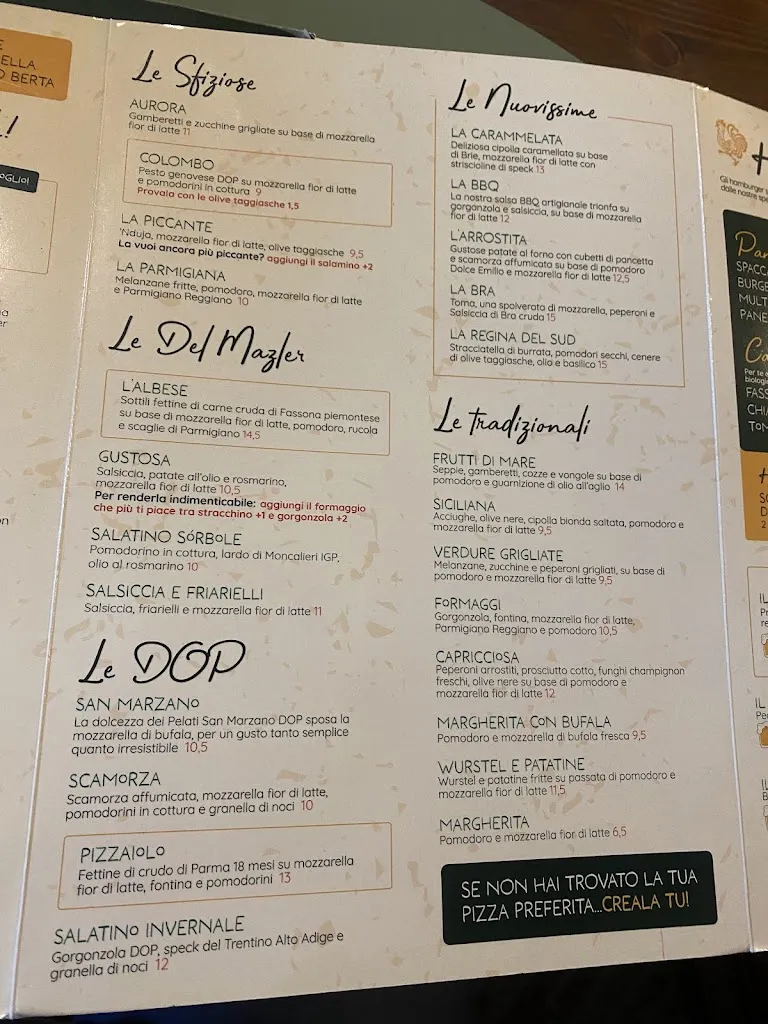 ELLA
O BERTA
Le Sfiziose
AURORA
Gamberetti e zucchine grigliate su base di mozzarella
fior di latte 11
COLOMBO
Pesto genovese DOP su mozzarella fior di latte
e pomodorini in cottura 9
Provala con le olive taggiasche 1,5
LA PICCANTE
'Nduja, mozzarella fior di latte, olive taggiasche 9,5
La vuoi ancora più piccante? aggiungi il salamino +2
LA PARMIGIANA
Melanzane fritte, pomodoro, mozzarella fior di latte
e Parmigiano Reggiano 10
Le Del Mazler
L'ALBESE
Sottili fettine di carne cruda di Fassona piemontese
su base di mozzarella fior di latte, pomodoro, rucola
e scaglie di Parmigiano 14,5
GUSTOSA
Salsiccia, patate all'olio e rosmarino,
mozzarella fior di latte 10,5
Per renderla indimenticabile: aggiungi il formaggio
che più ti piace tra stracchino +1 e gorgonzola +2
SALATINO SÓRBOLE
Pomodorino in cottura, lardo di Moncalieri IGP,
olio al rosmarino 10
SALSICCIA E FRIARIELLI
Salsiccia, friarielli e mozzarella fior di latte 11
Le DOP
SAN MARZANO
La dolcezza dei Pelati San Marzano DOP sposa la
mozzarella di bufala, per un gusto tanto semplice
quanto irresistibile 10,5
SCAMORZA
Scamorza affumicata, mozzarella fior di latte,
pomodorini in cottura e granella di noci 10
PIZZAIOLO
Fettine di crudo di Parma 18 mesi su mozzarella
fior di latte, fontina e pomodorini 13
SALATINO INVERNALE
Gorgonzola DOP, speck del Trentino Alto Adige e
granella di noci 12
Le Nuovissime
LA CARAMMELATA
Deliziosa cipolla caramellata su base
di Brie, mozzarella fior di latte con
striscioline di speck 13
LA BBQ
La nostra salsa BBQ artigianale trionfa su
gorgonzola e salsiccia, su base di mozzarella
fior di latte 12
L'ARROSTITA
Gustose patate al forno con cubetti di pancetta
e scamorza affumicata su base di pomodoro
Dolce Emilio e mozzarella fior di latte 12,5
LA BRA
Toma, una spolverata di mozzarella, peperoni e
Salsiccia di Bra cruda 15
LA REGINA DEL SUD
Stracciatella di burrata, pomodori secchi, cenere
di olive taggiasche, olio e basilico 15
Le tradizionali
FRUTTI DI MARE
Seppie, gamberetti, cozze e vongole su base di
pomodoro e guarnizione di olio all'aglio 14
SICILIANA
Acciughe, olive nere, cipolla bionda saltata, pomodoro e
mozzarella fior di latte 9,5
VERDURE GRIGLIATE
Melanzane, zucchine e peperoni grigliati, su base di
pomodoro e mozzarella fior di latte 9,5
FORMAGGI
Gorgonzola, fontina, mozzarella fior di latte,
Parmigiano Reggiano e pomodoro 10,5
CAPRICCIOSA
Peperoni arrostiti, prosciutto cotto, funghi champignon
freschi, olive nere su base di pomodoro e
mozzarella fior di latte 12
MARGHERITA CON BUFALA
Pomodoro e mozzarella di bufala fresca 9,5
WURSTEL E PATATINE
Wurstel e patatine fritte su passata di pomodoro e
mozzarella fior di latte 11,5
MARGHERITA
Pomodoro e mozzarella fior di latte 6,5
SE NON HAI TROVATO LA TUA
PIZZA PREFERITA...CREALA TU!
Gli hamburger
dalle nostre